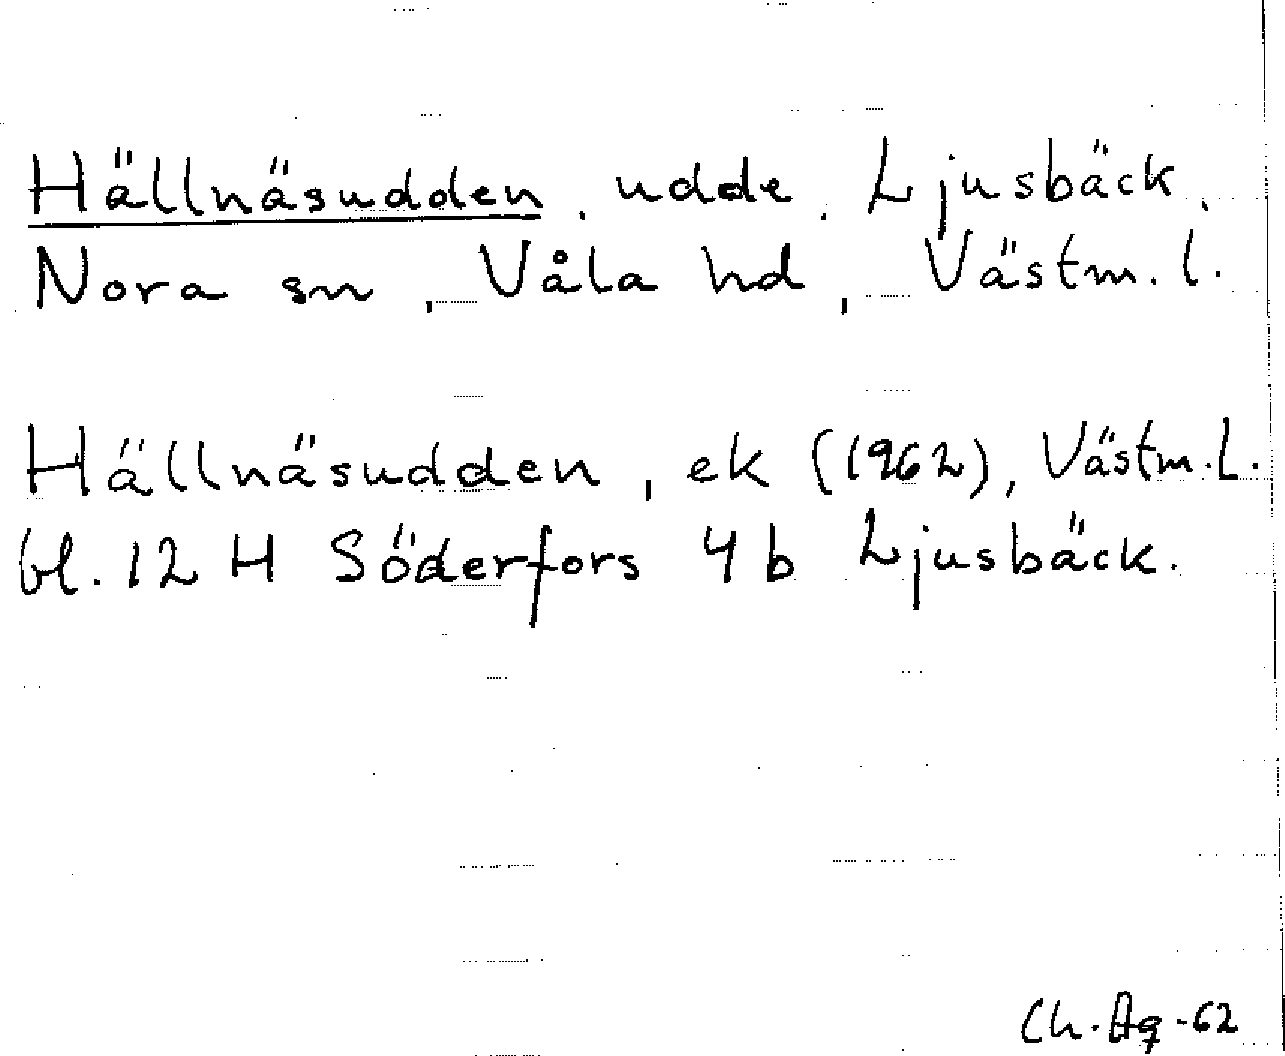 Hällnäsudden, udde, Ljusbäck,
Nora sn, Våla hd, Västm. l.
Hällnäsudden, ek (1962), Västm. L.
bl. 12 H Söderfors 4 b Ljusbäck.
Ch. Ag -62